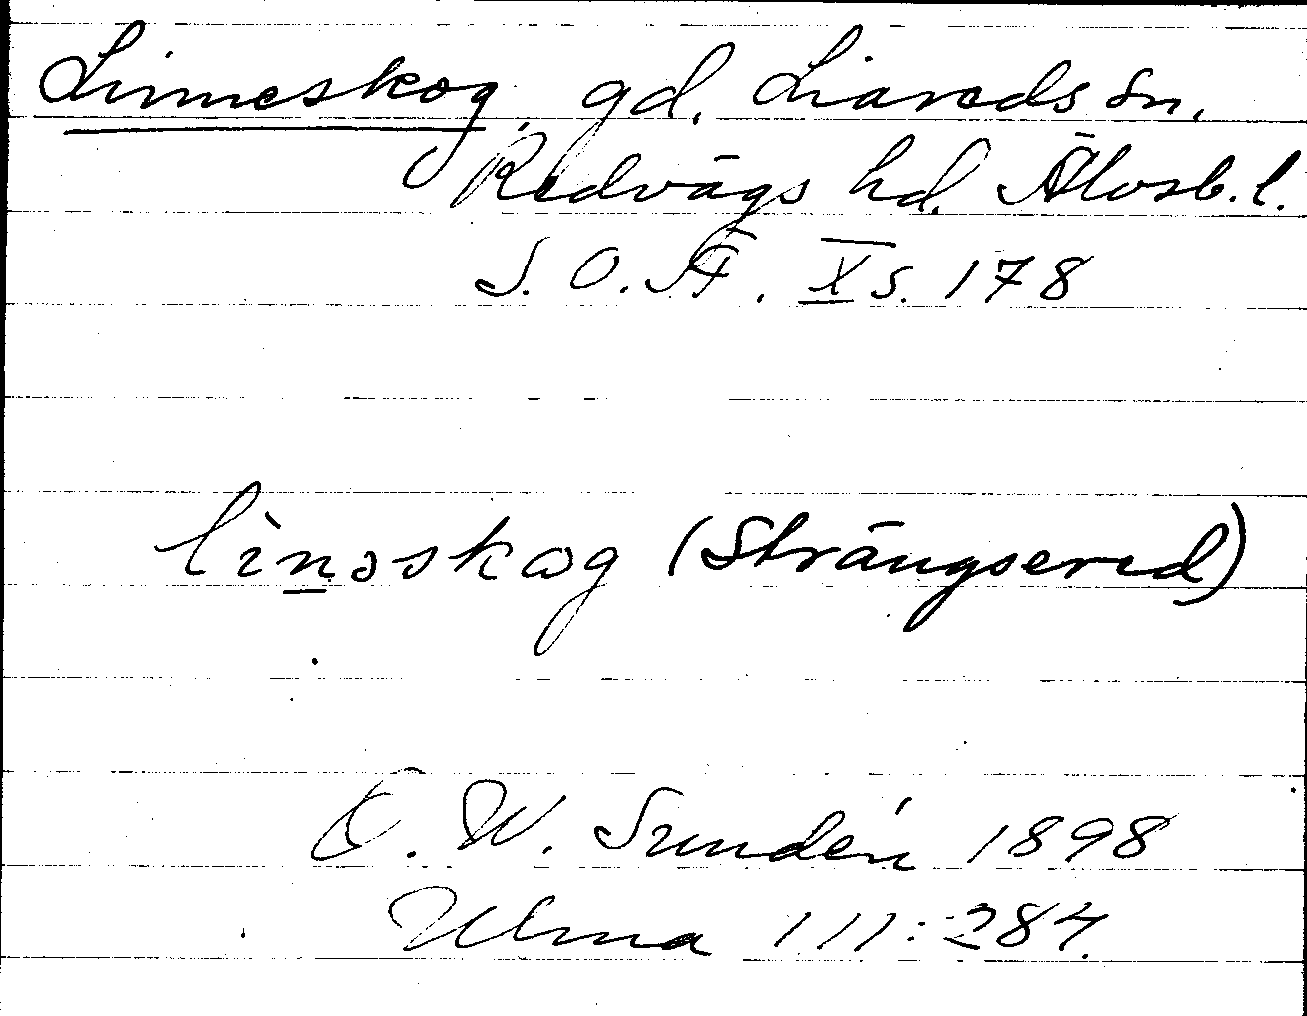 Linneskog, gd. Liareds sn.
Redvägs hd. Älvsb. l.
S. O. Ä. X s. 178
lìnəskog (Strängsered)
O. W. Sundén 1898
Ulma 111:284.